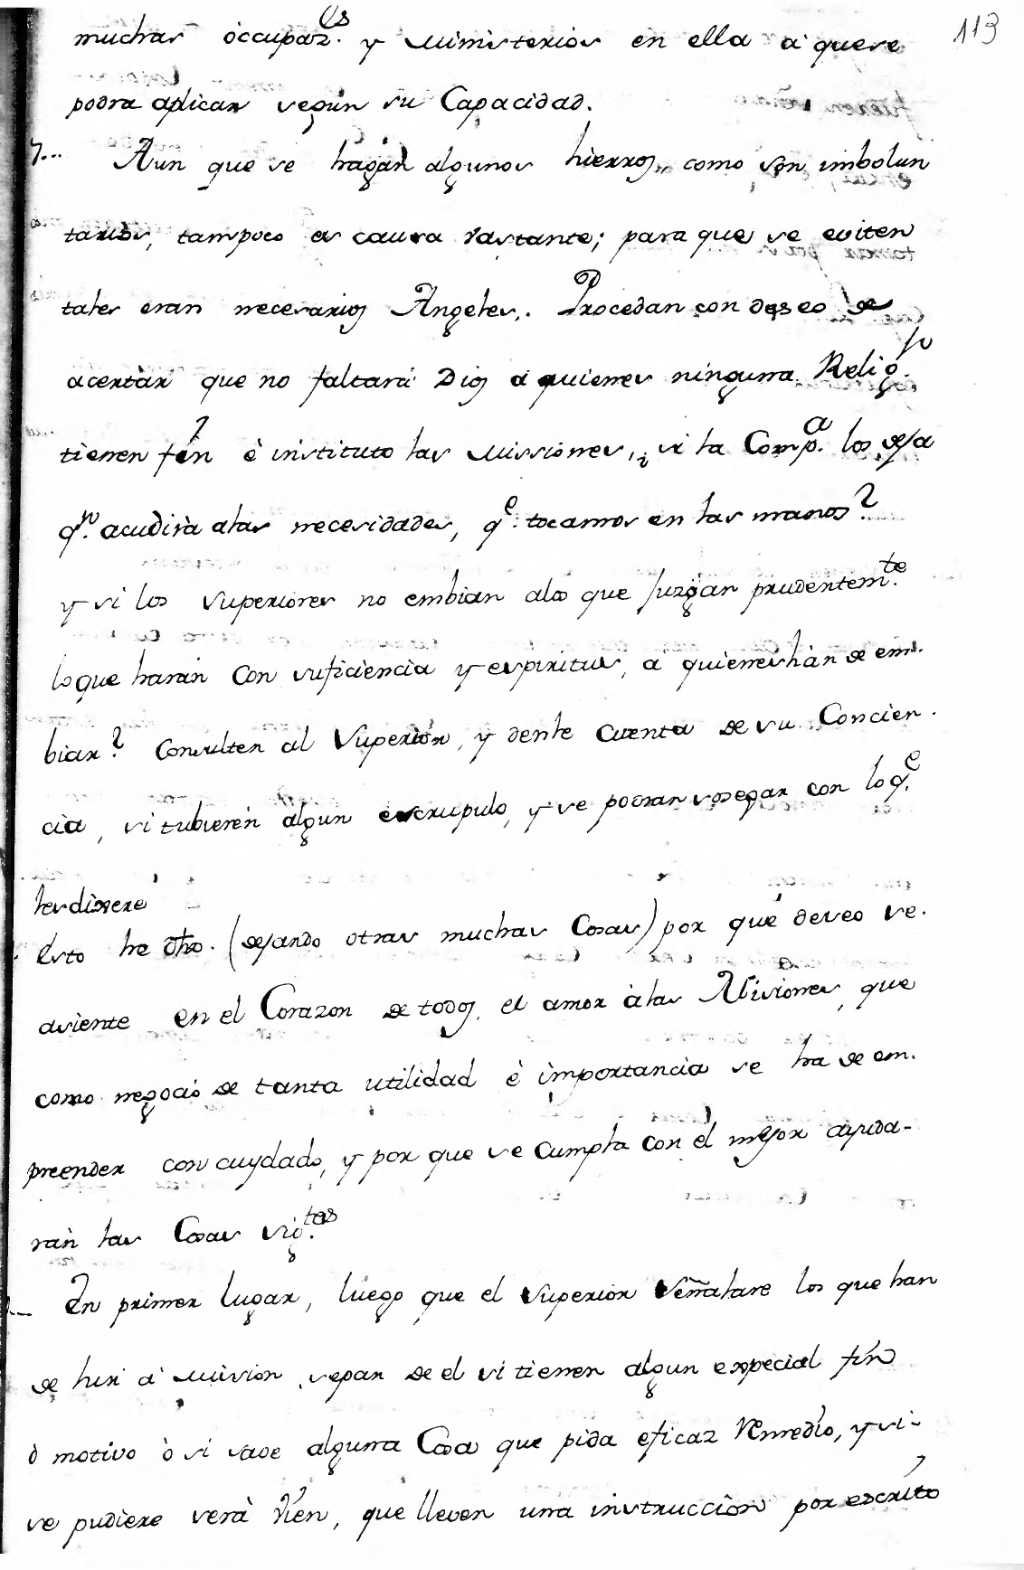 113
muchas occupaz.es y ministerios en ella a que se
podra aplicar segun su Capacidad.
7... Aun que se hagan algunos hierros, como son imbolun
tarios, tampoco es causa vastante; para que se eviten
tales eran necesarios Angeles. Procedan con deseo de
acertar que no faltará Dios a quienes ninguna Relig.n
tienen fin è instituto las missiones, si la Comp.a los deja
q.n acudirà alas necesidades, q.e tocamos en las manos?
y si los superiores no embian alos que juzgan prudentem.te
lo que haran con suficiencia y espiritus, a quienes hàn de em-
biar? consulten al Superior, y denle cuenta de su Concien-
cia, si tubieren algun escrupulo, y se podran sosegar con lo q.e
les dixere
Esto he dho. (dejando otras muchas Cosas) por que deseo se
asiente en el Corazon de todos el amor à las Misiones, que
como negocio de tanta utilidad è importancia se ha de em-
preender con cuydado, y por que se cumpla con el mejor ayuda-
ràn las Cosas sig.tes
En primer lugar, luego que el superior señalare los que han
de hir à mision, sepan de el si tienen algun especial fin
ò motivo ò si save alguna Cosa que pida eficaz Remedio, y si
se pudiere serà vien, que lleven una instruccion por escrito